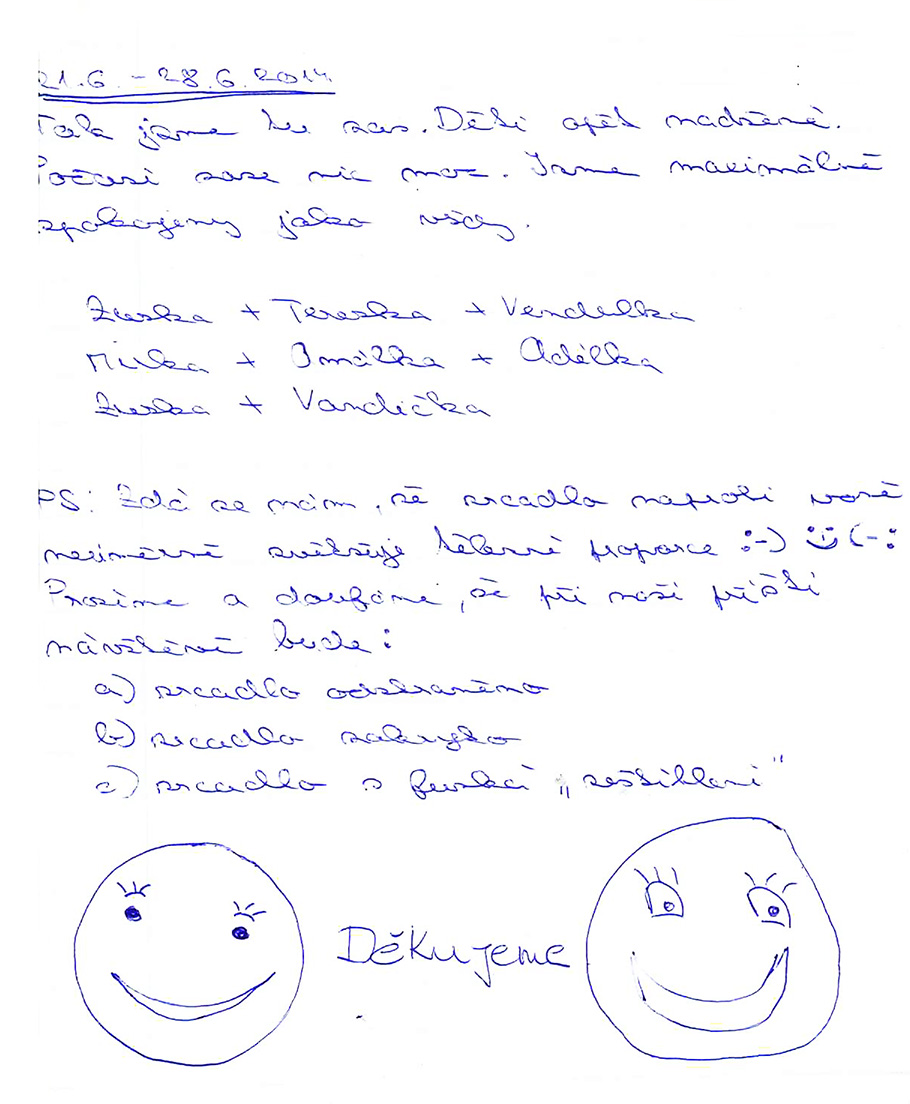 21.6. - 28.6.2014
Tak jsme tu zas. Děti opět nadšené.
Počasí zase nic moc. Jsme maximálně
spokojeny jako vždy.
Zuzka + Terezka + Vendulka
Mirka + Smálka + Adélka
Zuzka + Vandička
PS: Zdá se nám, že zrcadlo naproti vaně
neúměrně zvětšuje tělesné proporce :-) (-:
Prosíme a doufáme, že při naší příští
návštěvě bude:
a) zrcadlo odstraněno
b) zrcadlo zakryto
c) zrcadlo s funkcí „zeštíhlení"
Děkujeme